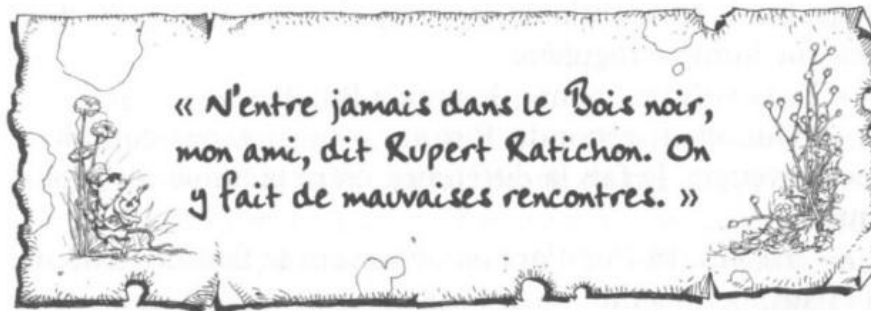 « N'entre jamais dans le Bois noir,
mon ami, dit Rupert Ratichon. On
y fait de mauvaises rencontres. »